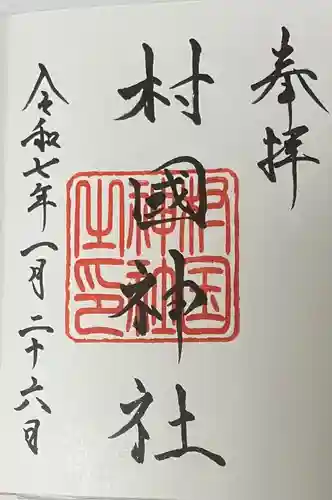 奉拝
村國神社
村国神社之印
令和七年一月二十六日